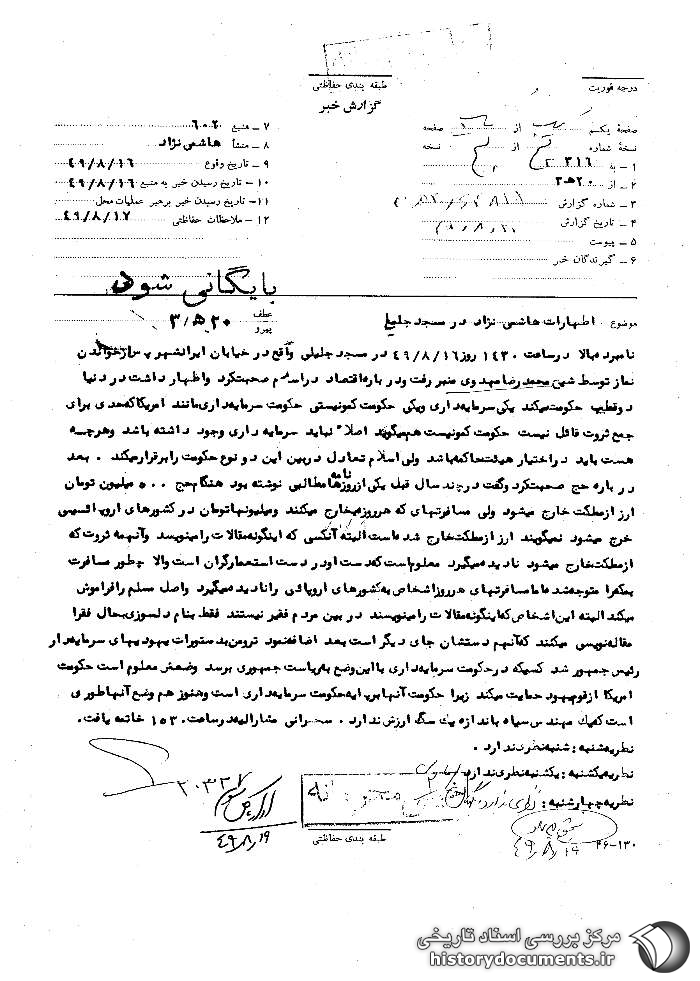 درجه فوریت
طبقه بندی حفاظتی
گزارش خبر
صفحهٔ یکم از صفحه
نسخهٔ شماره از نسخه
۱ ـ به ۳۱۶
۲ ـ از ۲۰ ه ۳
۳ ـ شماره گزارش
۴ ـ تاریخ گزارش
۵ ـ پیوست
۶ ـ گیرندگان خبر
۷ ـ منبع ۶۰۰۲
۸ ـ منشأ هاشمی نژاد
۹ ـ تاریخ وقوع ۴۹/۸/۱۶
۱۰ ـ تاریخ رسیدن خبر به منبع ۴۹/۸/۱۶
۱۱ ـ تاریخ رسیدن خبر برهبر عملیات محل
۱۲ ـ ملاحظات حفاظتی ۴۹/۸/۱۷
بایگانی شود
موضوع : اظهارات هاشمی نژاد در مسجد جلیلی
عطف
پیرو
۲۰ ه ۳/
نامبرده بالا در ساعت ۱۴۳۰ روز ۴۹/۸/۱۶ در مسجد جلیلی واقع در خیابان ایرانشهر پس از خواندن
نماز توسط شیخ محمد رضا مهدوی منبر رفت و درباره اقتصاد در اسلام صحبت کرد و اظهار داشت در دنیا
دو قطب حکومت میکند یکی سرمایه داری و یکی حکومت کمونیستی حکومت سرمایه داری مانند امریکا که حدی برای
جمع ثروت قائل نیست حکومت کمونیست هم میگوید اصلا نباید سرمایه داری وجود داشته باشد و هرچه
هست باید در اختیار هیئت حاکمه باشد ولی اسلام تعادل در بین این دو نوع حکومت را برقرار میکند . بعد
در باره حج صحبت کرد و گفت در چند سال قبل یکی از روزنامه ها مطالبی نوشته بود هنگام حج ۵۰۰ میلیون تومان
ارز از مملکت خارج میشود ولی مسافرتهای که هر روزه میخارج میکنند و میلیونها تومان در کشورهای اروپا قسیمی
خرج میشود نمیگویند ارز از مملکت خارج شده است البته آنکسی که اینگونه مقالات را مینویسد و آنهمه ثروت که
از مملکت خارج میشود نادیده میگیرد معلوم است که دست او در دست استعمارگران است والا چطور مسافرت
بمکه را متوجه شده اما مسافرتهای هر روز اشخاص به کشورهای اروپائی را نادیده میگیرد واصل مسلم را فراموش
میکند البته این اشخاص که اینگونه مقالات را مینویسند در بین مردم فقیر نیستند فقط بنام دلسوزی بحال فقرا
مقاله نویسی میکنند که آنهم دستشان جای دیگر است بعد اضافه نمود ترومن بدستورات یهودیهای سرمایه دار
رئیس جمهور شد کسیکه در حکومت سرمایه داری با این وضع به ریاست جمهوری برسد وضعش معلوم است حکومت
امریکا از قوم یهود حمایت میکند زیرا حکومت آنها بر پایه حکومت سرمایه داری است و هنوز هم وضع آنها طوری
است که یک مهندس سیاه باندازه یک سگ ارزش ندارد . سخنرانی مشارالیه در ساعت ۱۵۳۰ خاتمه یافت .
نظریه شنبه : شنبه نظری ندارد .
نظریه یکشنبه : یکشنبه نظری ندارد
نظریه چهارشنبه : نظری ندارد
۲۰۳۳۲
۴۹/۸/۱۹
۴۹/۸/۱۹
طبقه بندی حفاظتی
۴۶-۱۳۰
مرکز بررسی اسناد تاریخی
historydocuments.ir